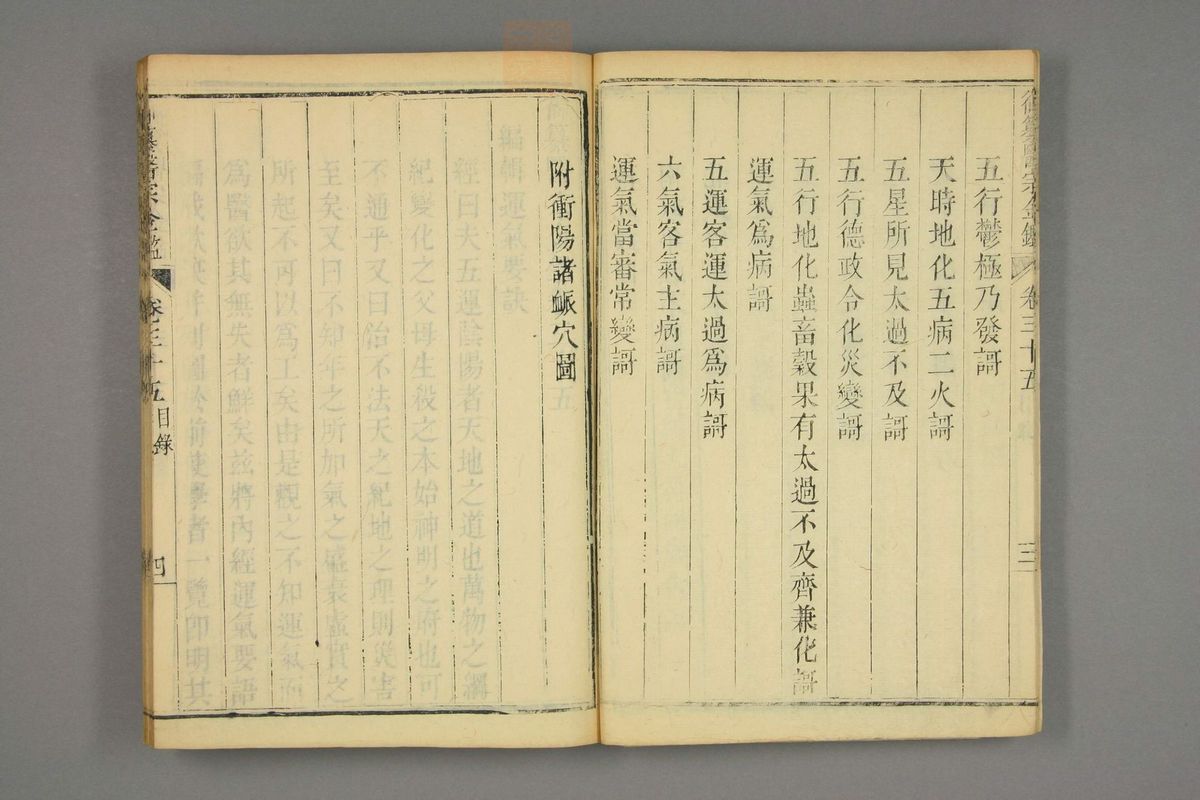 御纂醫宗金鑑 卷三十五 三
五行鬱極乃發謌
天時地化五病二火謌
五星所見太過不及謌
五行德政令化災變謌
五行地化蟲畜穀果有太過不及齊兼化謌
運氣爲病謌
五運客運太過爲病謌
六氣客氣主病謌
運氣當審常變謌
附衝陽諸䘑穴圖
編輯運氣要訣
經曰夫五運陰陽者天地之道也萬物之綱
紀變化之父母生殺之本始神明之府也可
不通乎又曰治不法天之紀地之理則災害
至矣又曰不知年之所加氣之盛衰虛實之
所起不可以爲工矣由是觀之不知運氣而
爲醫欲其無失者鮮矣茲將內經運氣要語
學者一覽卽明其
御纂醫宗金鑑 卷三十五 目錄 四